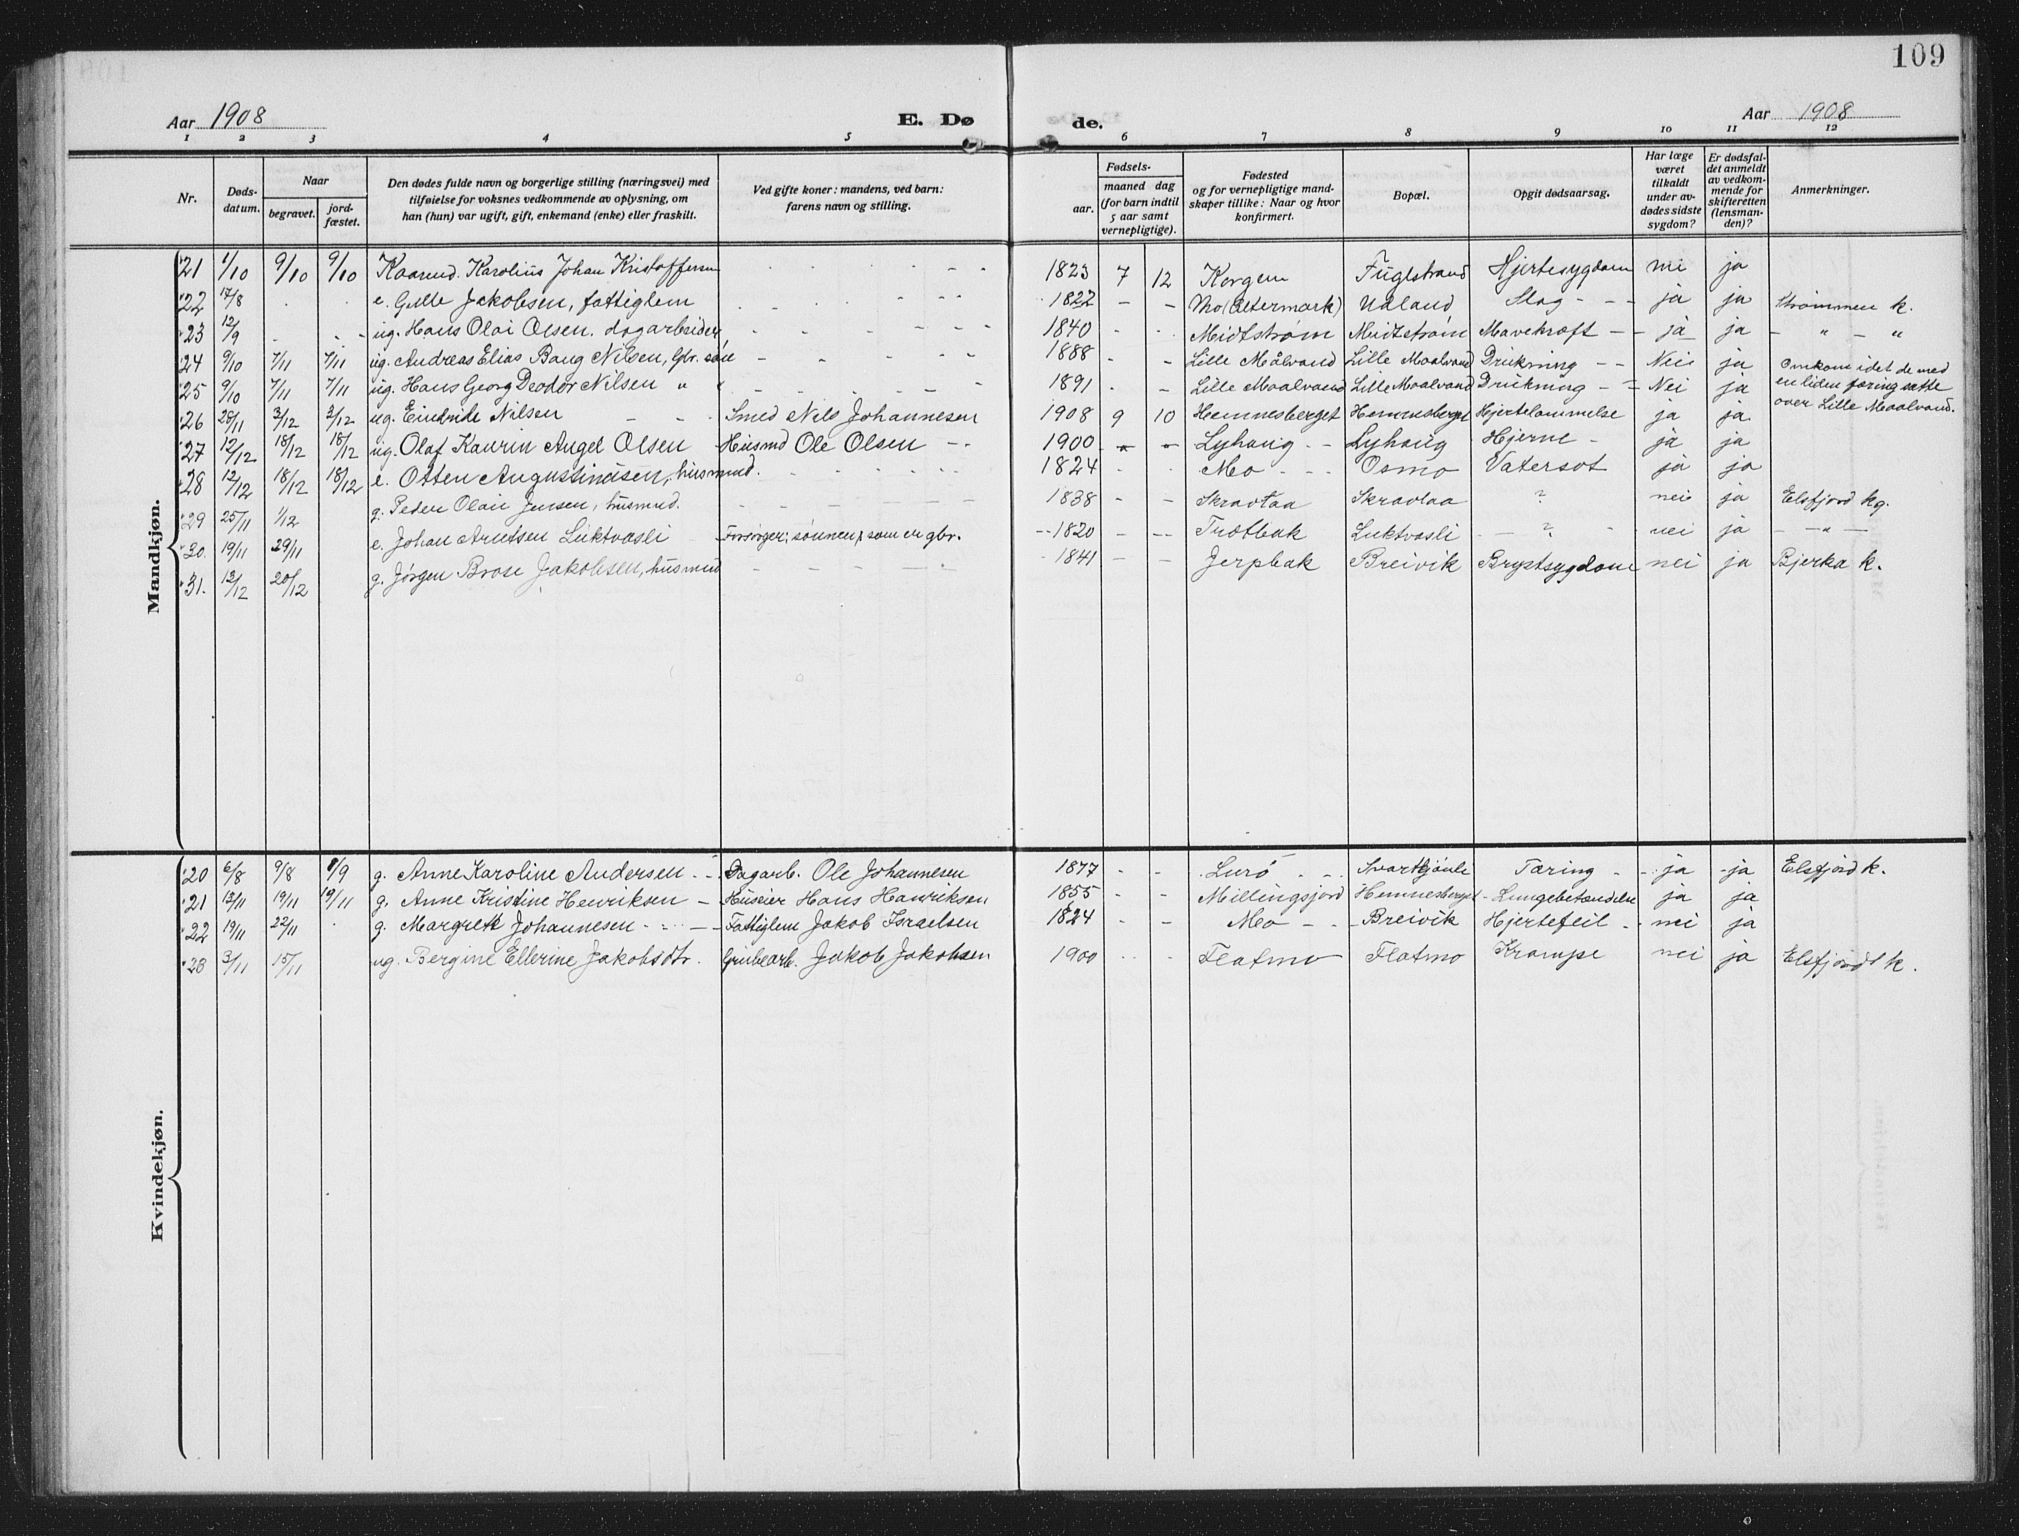 109
Aar 1908 E. Dø de. Aar 1908
1 2 3 4 5 6 7 8 9 10 11 12
Nr. Døds-datum. Naar begravet. jord-fæstet. Den dødes fulde navn og borgerlige stilling (næringsvei) med tilføielse for voksnes vedkommende av oplysning, om han (hun) var ugift, gift, enkemand (enke) eller fraskilt. Ved gifte koner: mandens, ved barn: farens navn og stilling. Fødsels- aar. maaned dag (for barn indtil 5 aar samt vernepligtige). Fødested og for vernepligtige mand-skaper tillike: Naar og hvor konfirmert. Bopæl. Opgit dødsaarsag. Har læge været tilkaldt under av-dødes sidste sygdom? Er dødsfal-det anmeldt av vedkom-mende for skifteretten (lensman-den)? Anmerkninger.
Mandkjøn.
21 1/10 9/10 9/10 Kaarud. Karolius Johan Kristoffersen 1823 7 12 Korgen Fuglstrand Hjertesygdom nei ja
22 17/8 e. Gulle Jakobsen, fattiglem 1822 - - Mo (Altermark) Udland Slag - - ja ja Strømmen k.
23 12/9 ug. Hans Olai Olsen. dagarbeider 1840 Midtstrøm Midtstrøm Mavekræft - - ja ja - " - "
24 9/10 7/11 7/11 ug. Andreas Elias Bang Nilsen, Gbr. søn 1888 - - Lille Målvand Lille Maalvand Drukning - - Nei ja Omkom idet de med
25 9/10 7/11 7/11 ug. Hans Georg Deodor Nilsen " " 1891 - - Lille Maalvand Lille Maalvand Drukning - - Nei ja en liden færing satte
26 28/11 3/12 3/12 ug. Eindride Nilsen - - Smed Nils Johannesen 1908 9 10 Hemnesberget Hemnesberget Hjertelammelse ja ja over Lille Maalvand.
27 12/12 18/12 18/12 ug. Olaf Kaurin Angel Olsen Husmd Ole Olsen - - 1900 - - Lyhaug - - Lyhaug Hjerne - ja ja
28 12/12 18/12 18/12 e. Otten Augustinusen, husmand. 1824 Mo - - - Osmo Vatersot ja ja
29 25/11 1/12 g. Peder Olai Jensen, husmd. - - - 1838 - - Skravlaa Skravlaa ? nei ja Elsfjord kg.
30. 19/11 29/11 e. Johan Arntsen Luktvasli Forsørger: sønnen, som er gbr. 1820 - - Trætbak Luktvasli - ? - nei ja - " -
31. 12/12 20/12 g. Jørgen Brose Jakobsen, husmd 1841 - - Jerpbak Breivik Brystsygdom nei ja Bjerka k.
Kvindekjøn.
20 6/8 9/8 8/9 g. Anne Karoline Andersen - - Dagarb. Ole Johannesen 1877 - - Lurø - - Svartkjønli Tæring - - ja ja Elsfjord k.
21 13/11 19/11 19/11 g. Anne Kristine Henriksen - Huseier Hans Hanriksen 1855 - - Millingsjord Hemnesberget - Lungebetændelse ja ja
22 19/11 22/11 g. Margret Johannesen - - - Fattiglem Jakob Israelsen 1824 - - Mo - - Breivik Hjertefeil - nei ja
23 3/11 15/11 ug. Bergine Ellerine Jakobsdtr. Grubearb. Jakob Jakobsen 1900 Flatmo Flatmo Krampe nei ja Elsfjord k.